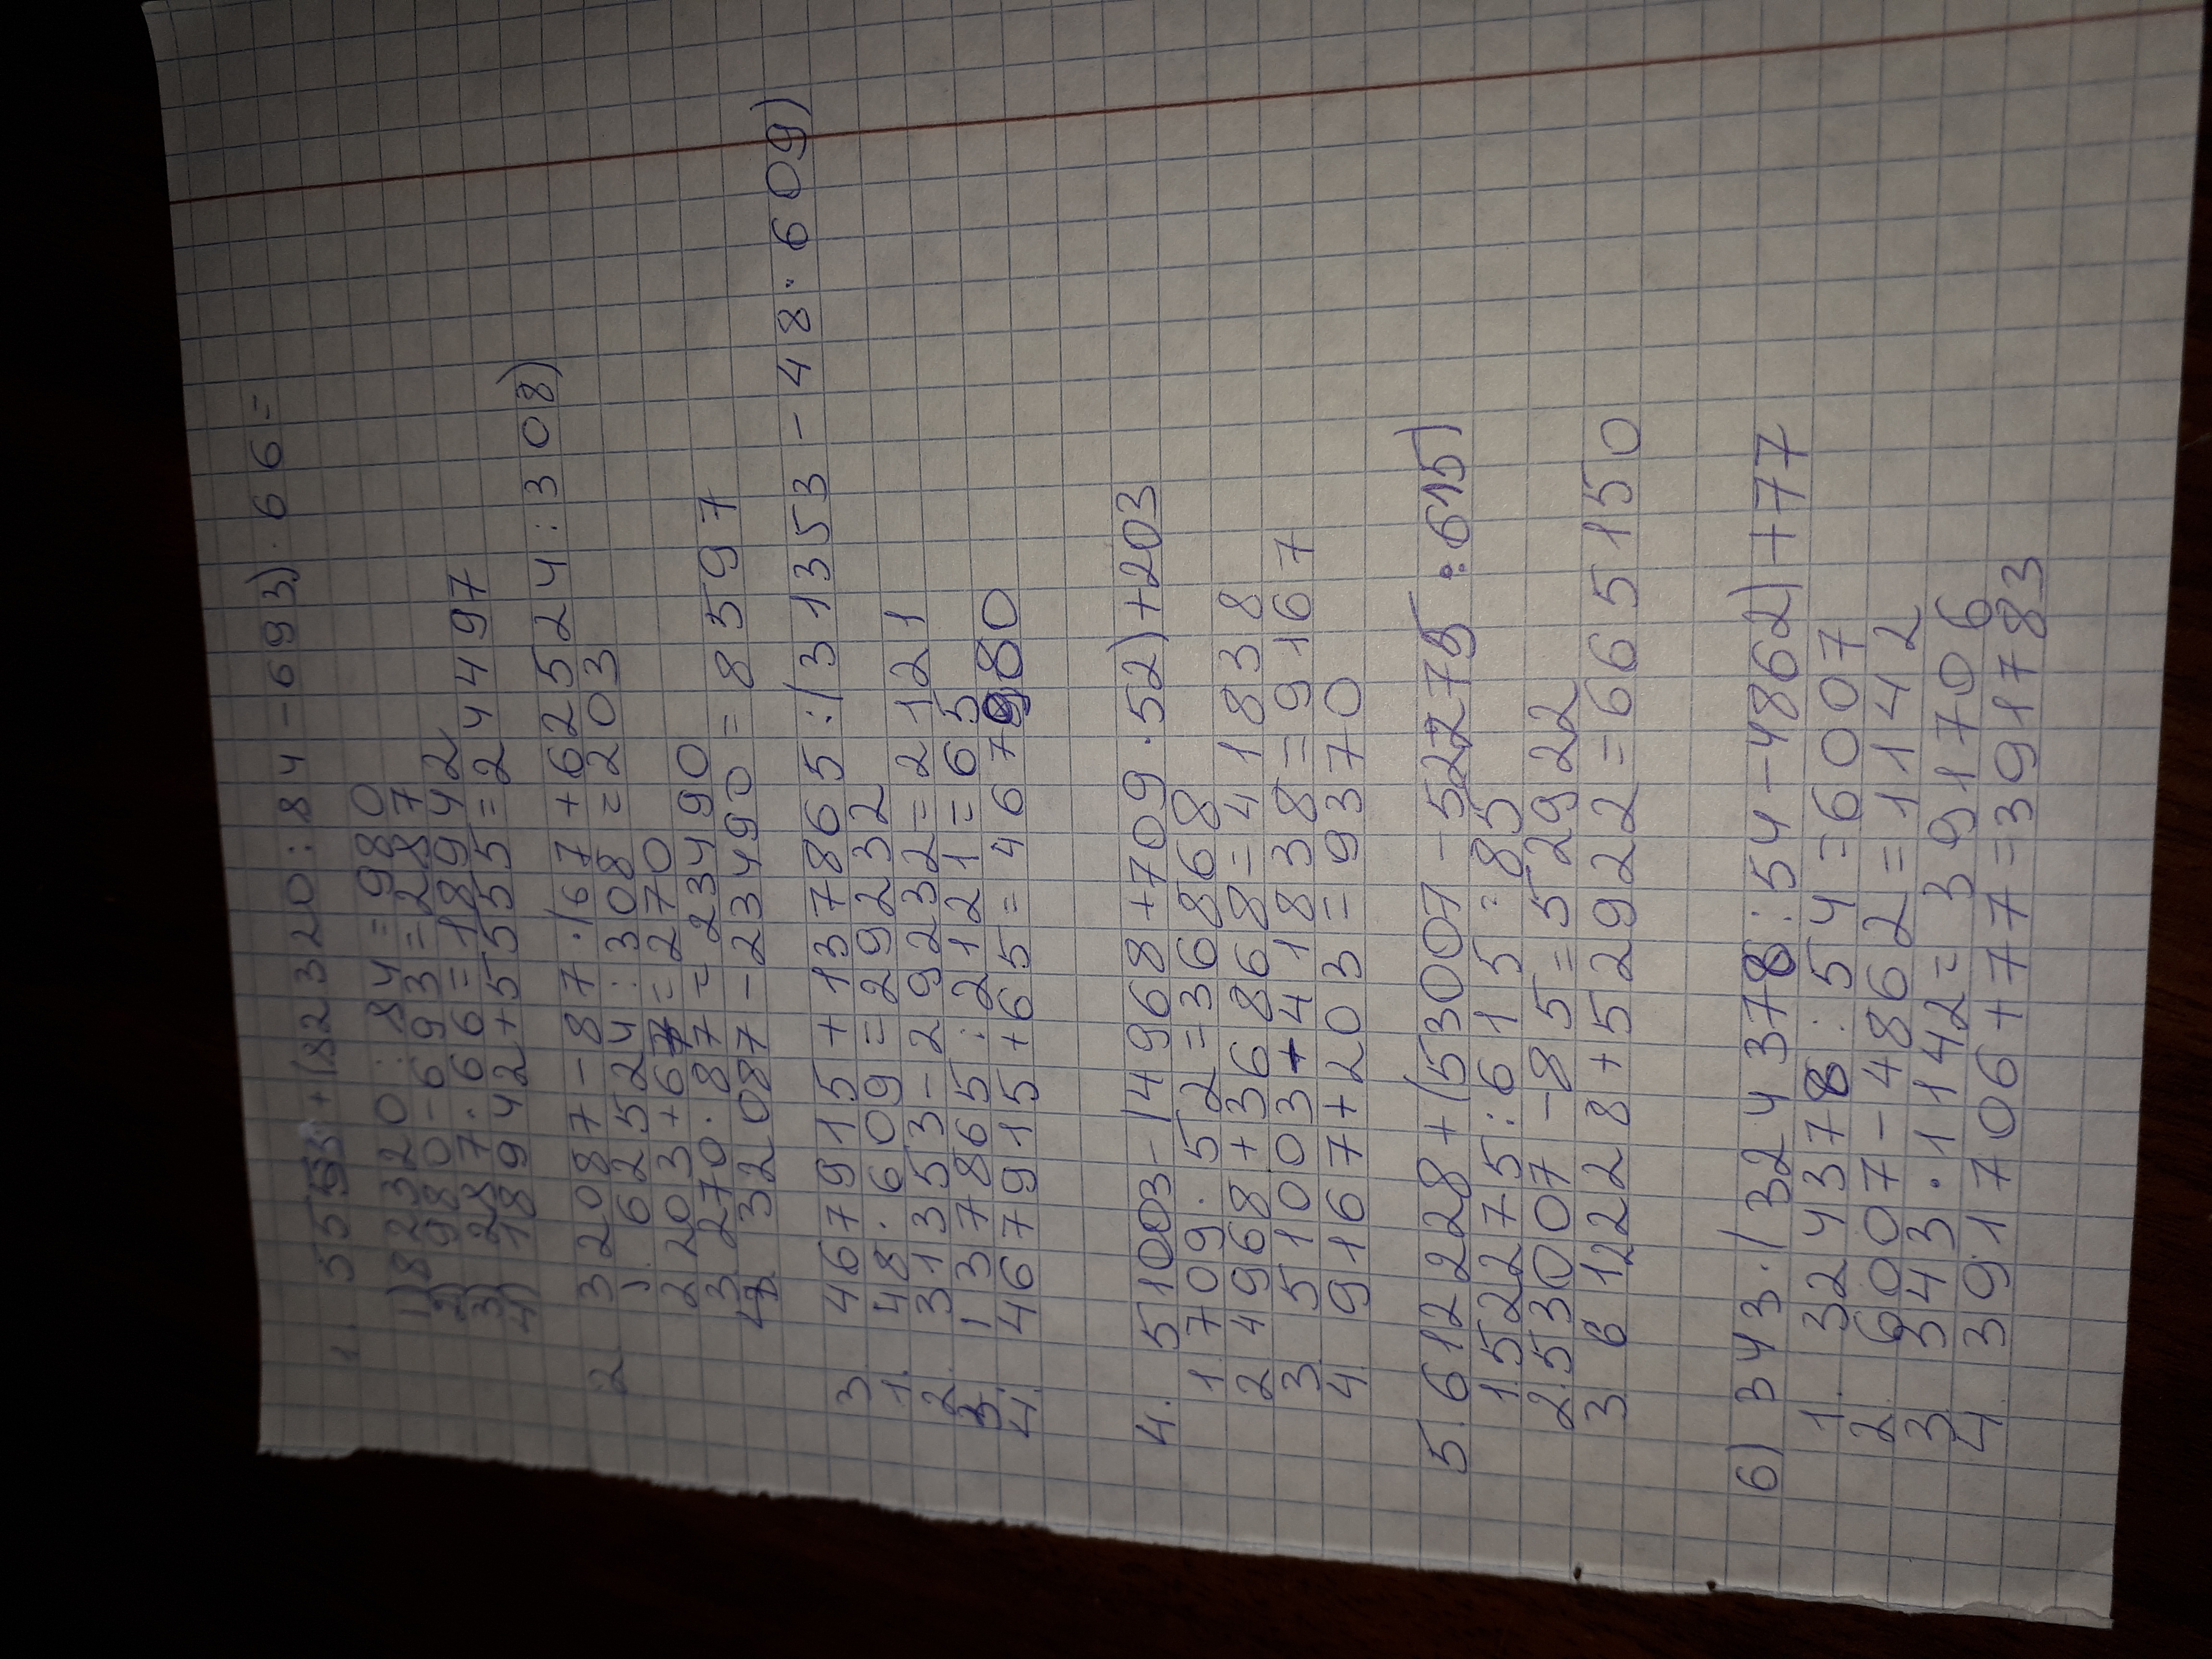 1. 5555+(82320:84-693)·66=
1) 82320:84=980
2) 980-693=287
3) 287·66=18942
4) 18942+5555=24497
2. 32087-87·(67+62524:308)
1. 62524:308=203
2 203+67=270
3. 270·87=23490
4 32087-23490=8597
3. 467915+137865:(31353-48·609)
1. 48·609=29232
2. 31353-29232=2121
3. 137865:2121=65
4. 467915+65=467980
4. 51003-(4968+709·52)+203
1. 709·52=36868
2 4968+36868=41838
3. 51003+41838=9167
4. 9167+203=9370
5. 612228+(53007-52275:615)
1. 52275:615=85
2. 53007-85=52922
3. 612228+52922=665150
6) 343·(324378:54-4862)+77
1. 324378:54=6007
2. 6007-4862=1142
3 343·1142=391706
4. 391706+77=391783